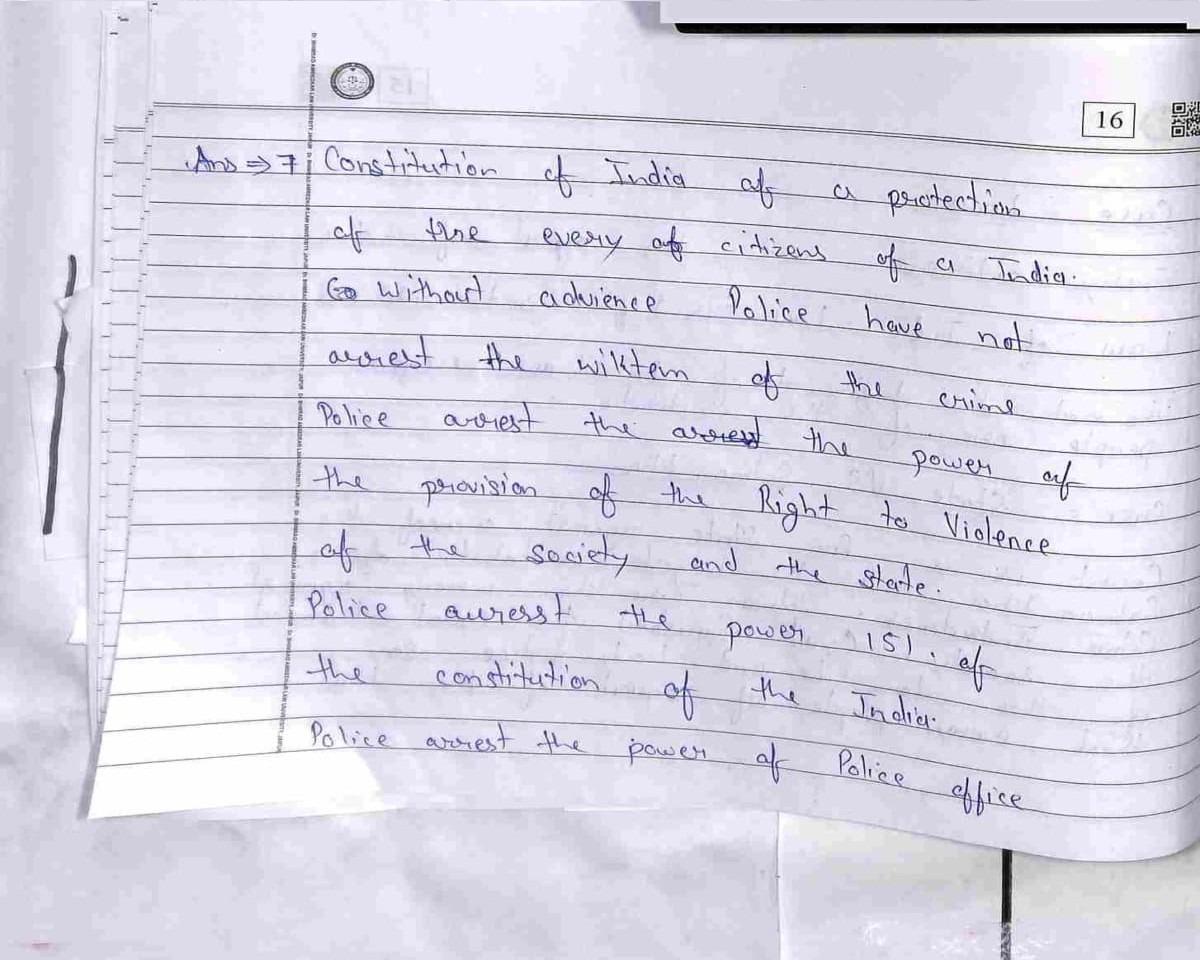 16
Ans ⇒ 7 Constitution of India of a protection
of the every of citizens of a India.
Without advience Police have not
arrest the wiktem of the crime
Police arrest the arrest the power of
the provision of the Right to Violence
of the society and the state.
Police auresst the power 151. of
the constitution of the India.
Police arrest the power of Police office
Dr. BHIMRAO AMBEDKAR LAW UNIVERSITY, JAIPUR